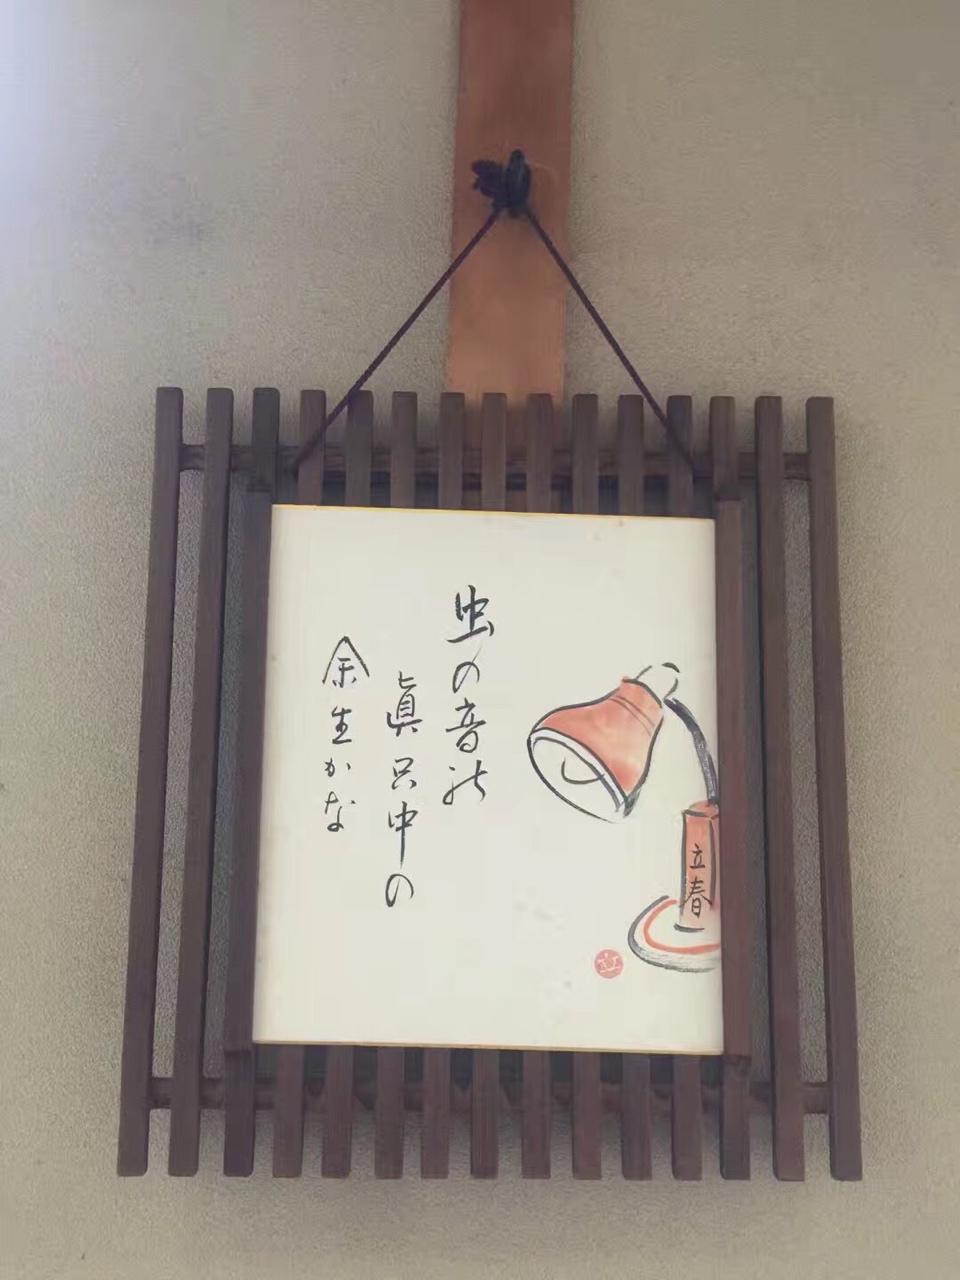 立春
虫の音の
眞只中の
余生かな
立